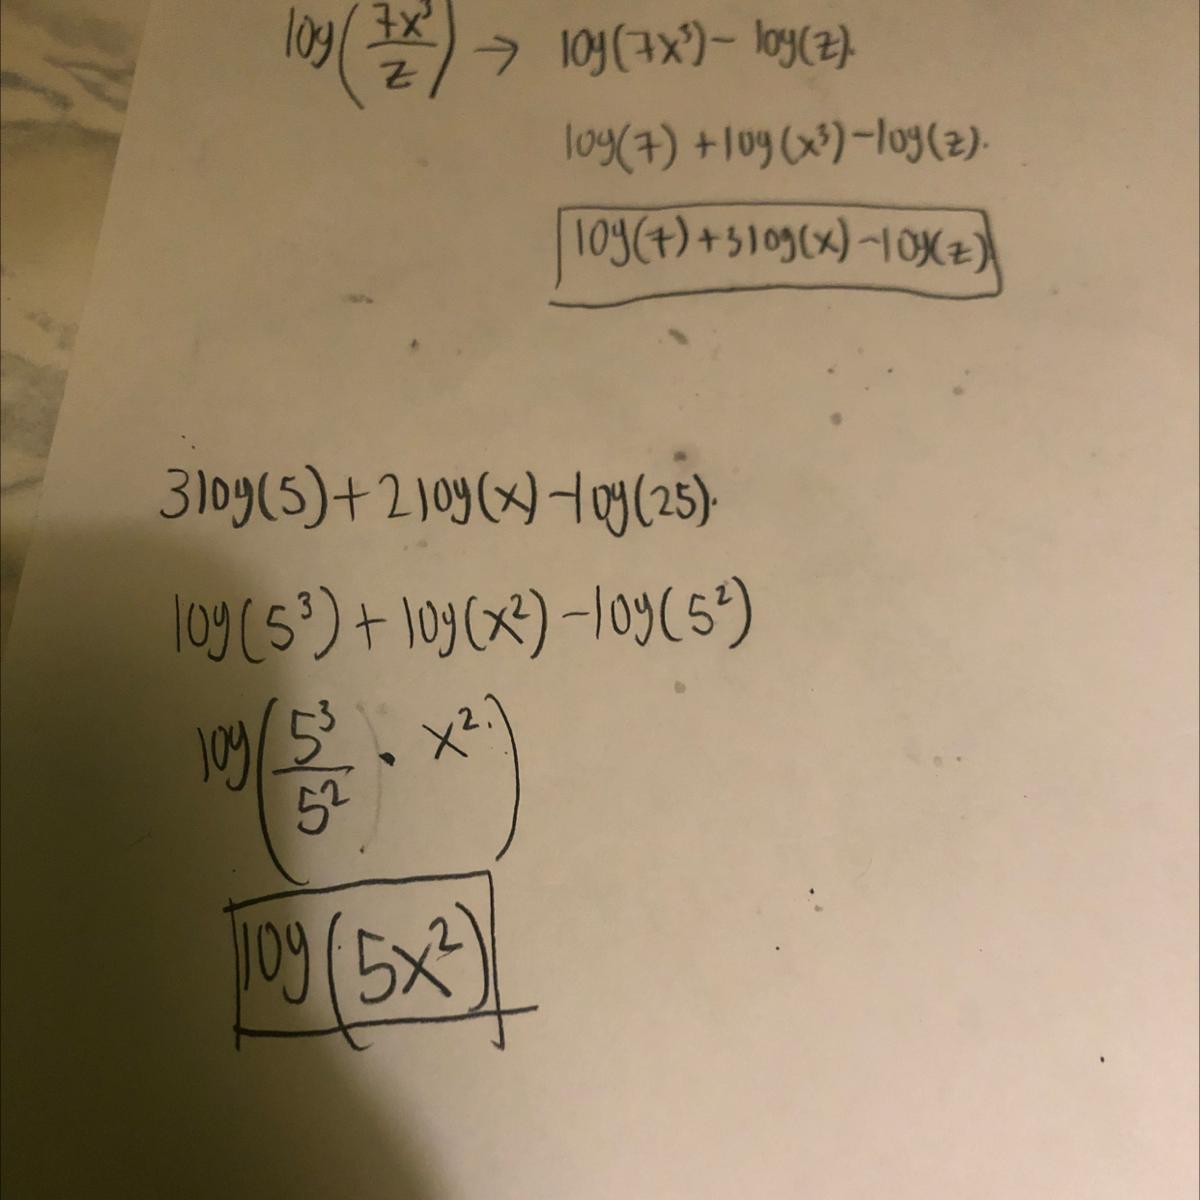 log(7x³/z) → log(7x³) - log(z).
log(7) + log(x³) - log(z).
log(7) + 3log(x) - log(z)
3log(5) + 2log(x) - log(25).
log(5³) + log(x²) - log(5²)
log(5³/5² · x²)
log(5x²)